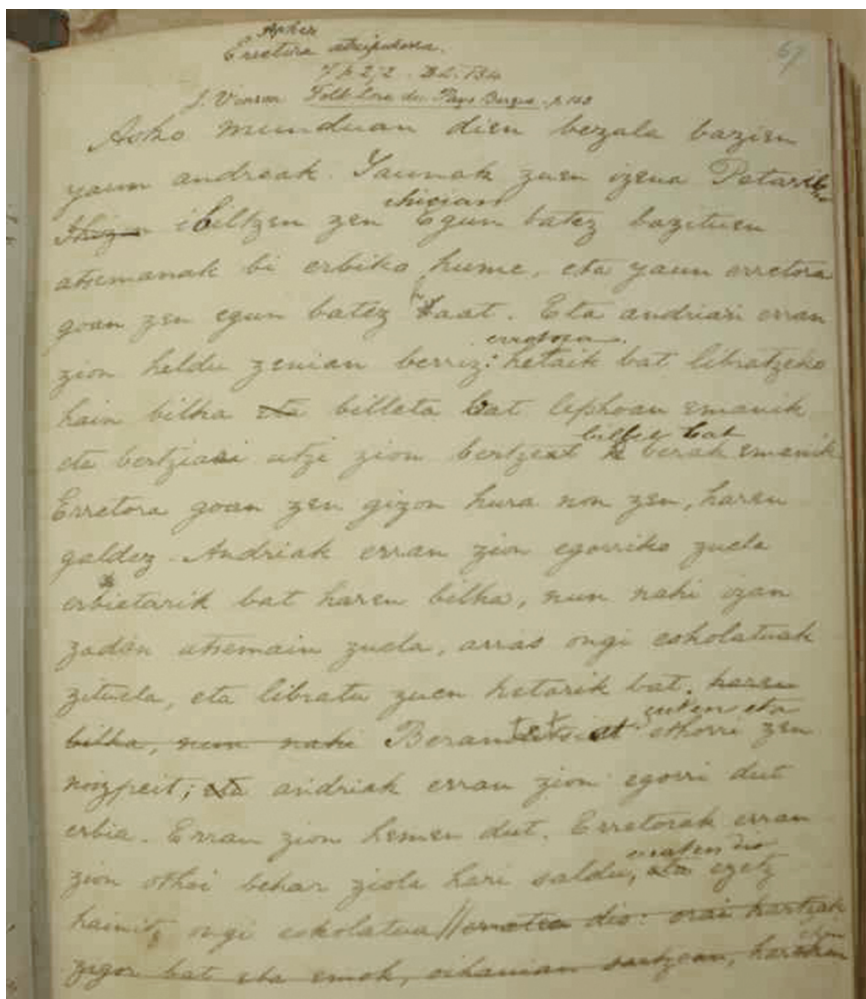 67
Aphez
Erretora atzipatua.
J. Vinson Folk-Lore du Pays Basque. p. 103
Asko munduan dien bezala bazien
yaun andreak. Yaunak zuen izena Petarik
ihizian
Ihizin ibiltzen zen Egun batez bazituen
atzemanak bi erbiko hume, eta yaun erretora
goan zen egun batez bat. Eta andriari erran
erretora.
zion heldu zenian berriz: hetaik bat libratzeko
hain bilha eta billeta bat lephoan emanik
billet bat
eta bertziari utzi zion berak emanik
Erretora goan zen gizon hura non zen, haren
galdez. Andriak erran zion egorriko zuela
erbietarik bat haren bilha, nun nahi izan
zadan atzemain zuela, arras ongi eskolatuak
zituela, eta libratu zuen hetarik bat. haren
zuten eta
bilha, nun nahi ethorri zen
noizpeit; eta andriak erran zion egorri dut
erbia. Erran zion hemen dut. Erretorak erran
erraten dio
zion othoi behar ziola hari saldu, eta ezetz
hainitz ongi eskolatua // erratea dio: orai hartzak
zigor bat eta emok, oihanian sartzean,